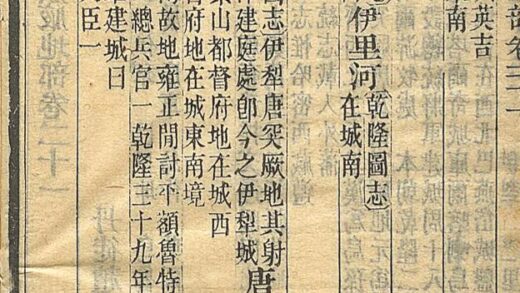 英吉
南
伊里河
乾隆圖志
在城南
志伊犁唐突厥地其射
建庭處卽今之伊犁城
唐
山都督府地在城西
府地在城東南境
故地雍正閒討平額魯特
總兵官一 乾隆三十九年
建城曰
臣一